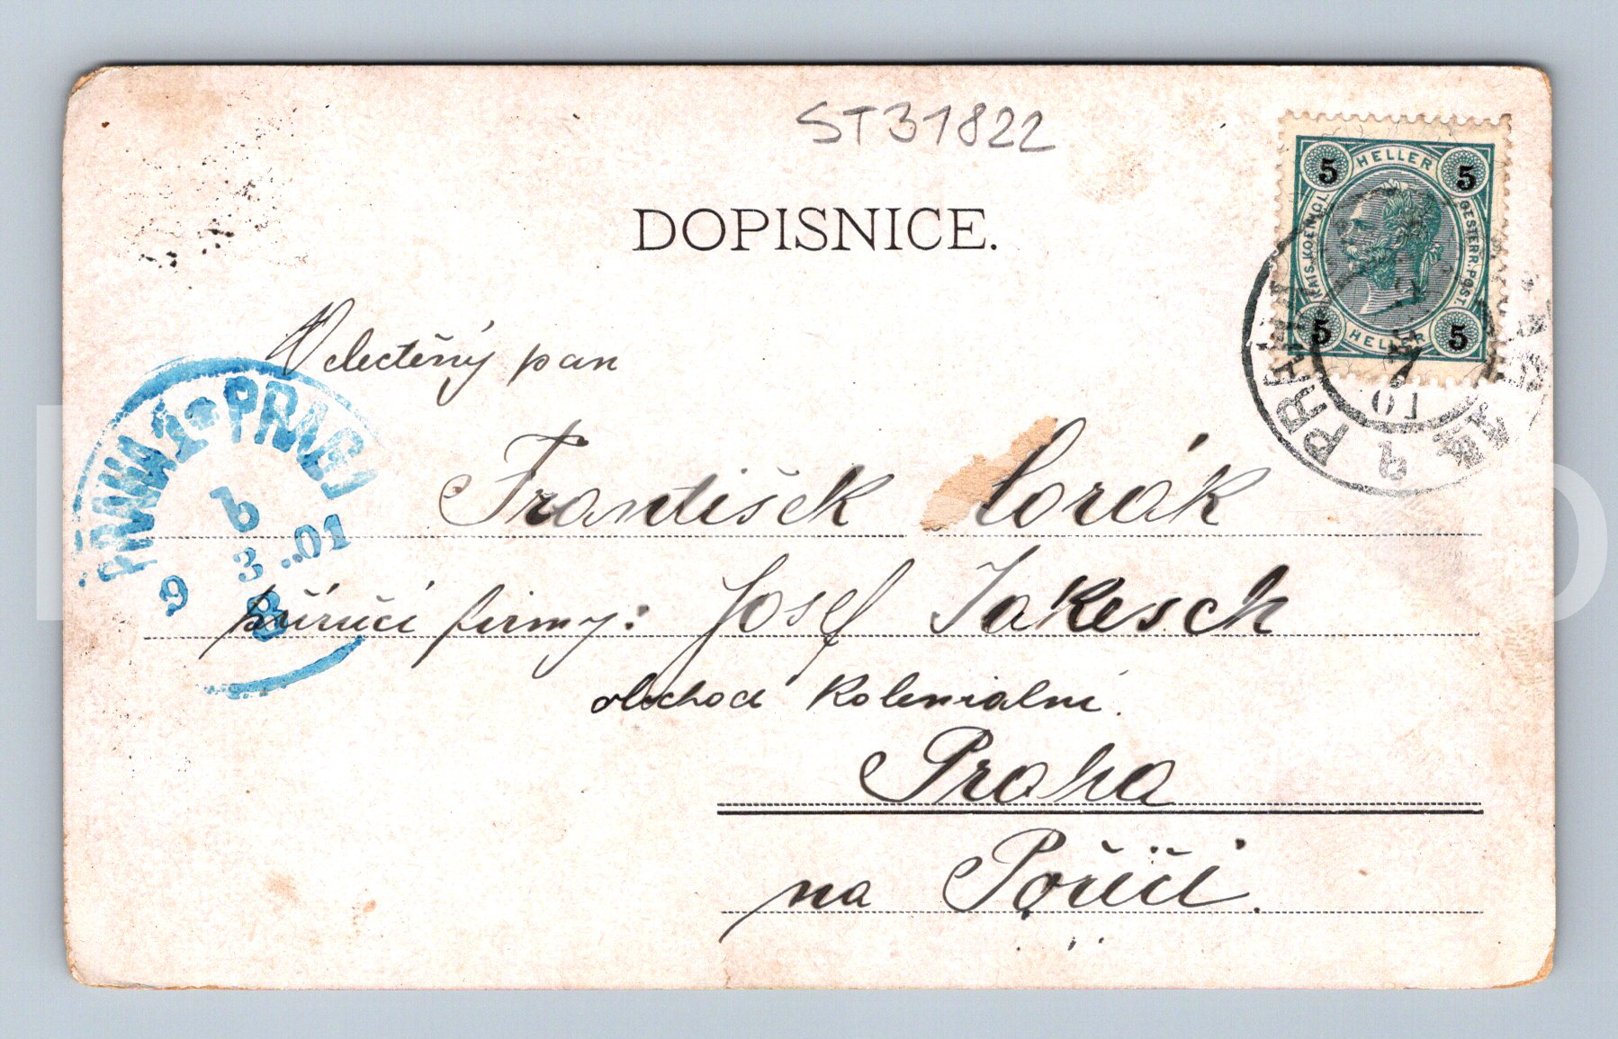 ST31822
DOPISNICE.
5 HELLER 5
KAIS. KOENIGL. OESTERR. POST.
5 HELLER 5
VeLectěný pan
František
příručí firmy: Josef Jakesch
obchod Koleniální.
Praha
na Poříčí.
PRAHA 1 * PRAG 1
b
9 3 ..01
8
PRAHA